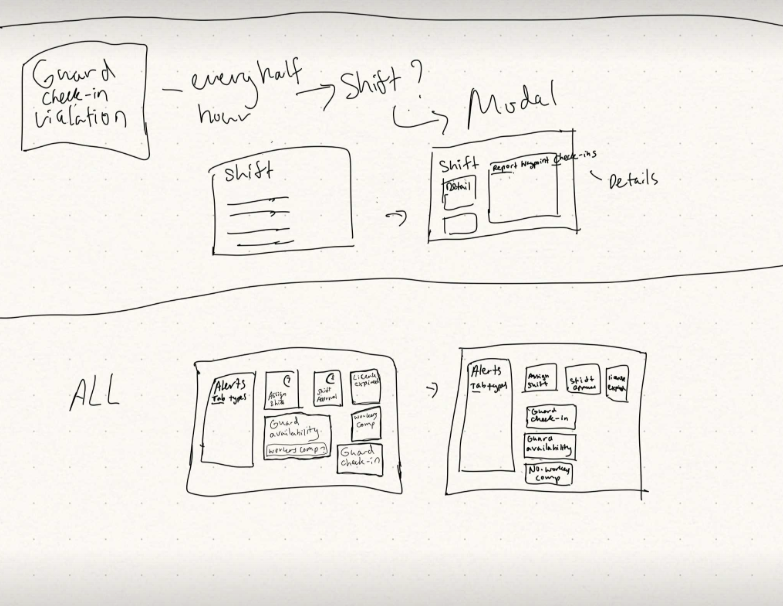 Guard
check-in
violation
every half
hour
Shift?
Modal
Shift
Shift
Detail
Report Waypoint Check-ins
Details
ALL
Alerts
Tab types
Assign
Shift
Shift
Approval
License
expired
Guard
availability
workers comp
workers
comp
Guard
check-in
Alerts
Tab types
Assign
Shift
Shift
approval
Guard
check-in
Guard
availability
No. workers
comp